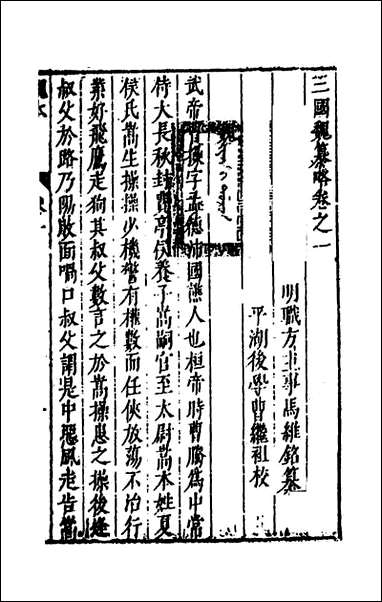 三國魏纂略卷之一
明職方主事馬維銘纂
平湖後學曹繼祖校
武帝曹操字孟德沛國譙人也桓帝時曹騰為中常
侍大長秋封費亭侯養子嵩嗣官至太尉嵩本姓夏
侯氏嵩生操操少機警有權數而任俠放蕩不治行
業好飛鷹走狗其叔父數言之於嵩操患之操後逢
叔父於路乃陽敗面喎口叔父謂是中惡風走告嵩